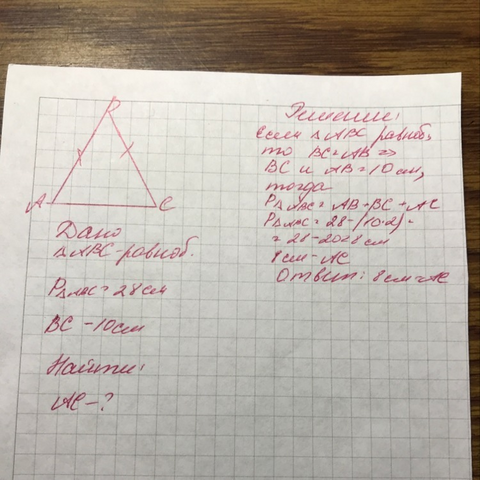 B
A
C
Дано
△ABC-равноб.
P△ABC = 28 см
BC - 10 см
Найти:
AC - ?
Решение:
если △ABC равноб,
то BC = AB =>
BC и AB = 10 см,
тогда
P△ABC = AB + BC + AC
P△ABC = 28 - (10·2) =
= 28 - 20 = 8 см
8 см - AC
Ответ: 8 см = AC